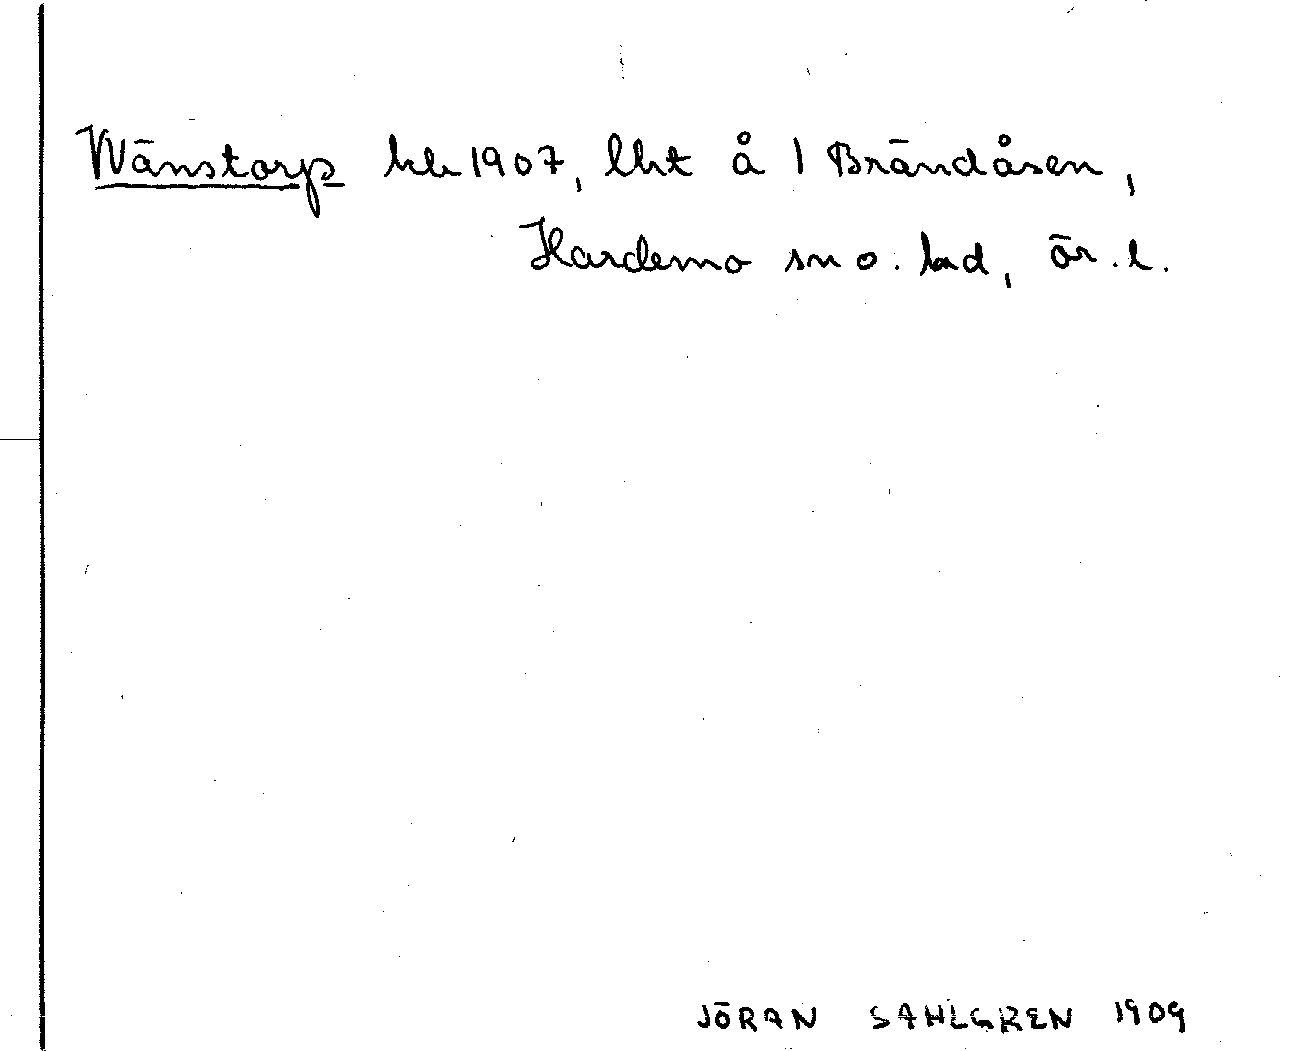 Wänstorp hfl 1907, lht å 1 Brändåsen,
Hardemo sn o. hd, ör. l.
JÖRAN SAHLGREN 1909